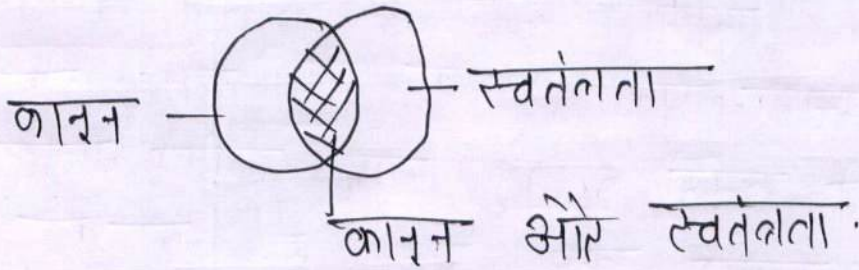 कानून
स्वतंत्रता
कानून और स्वतंत्रता.